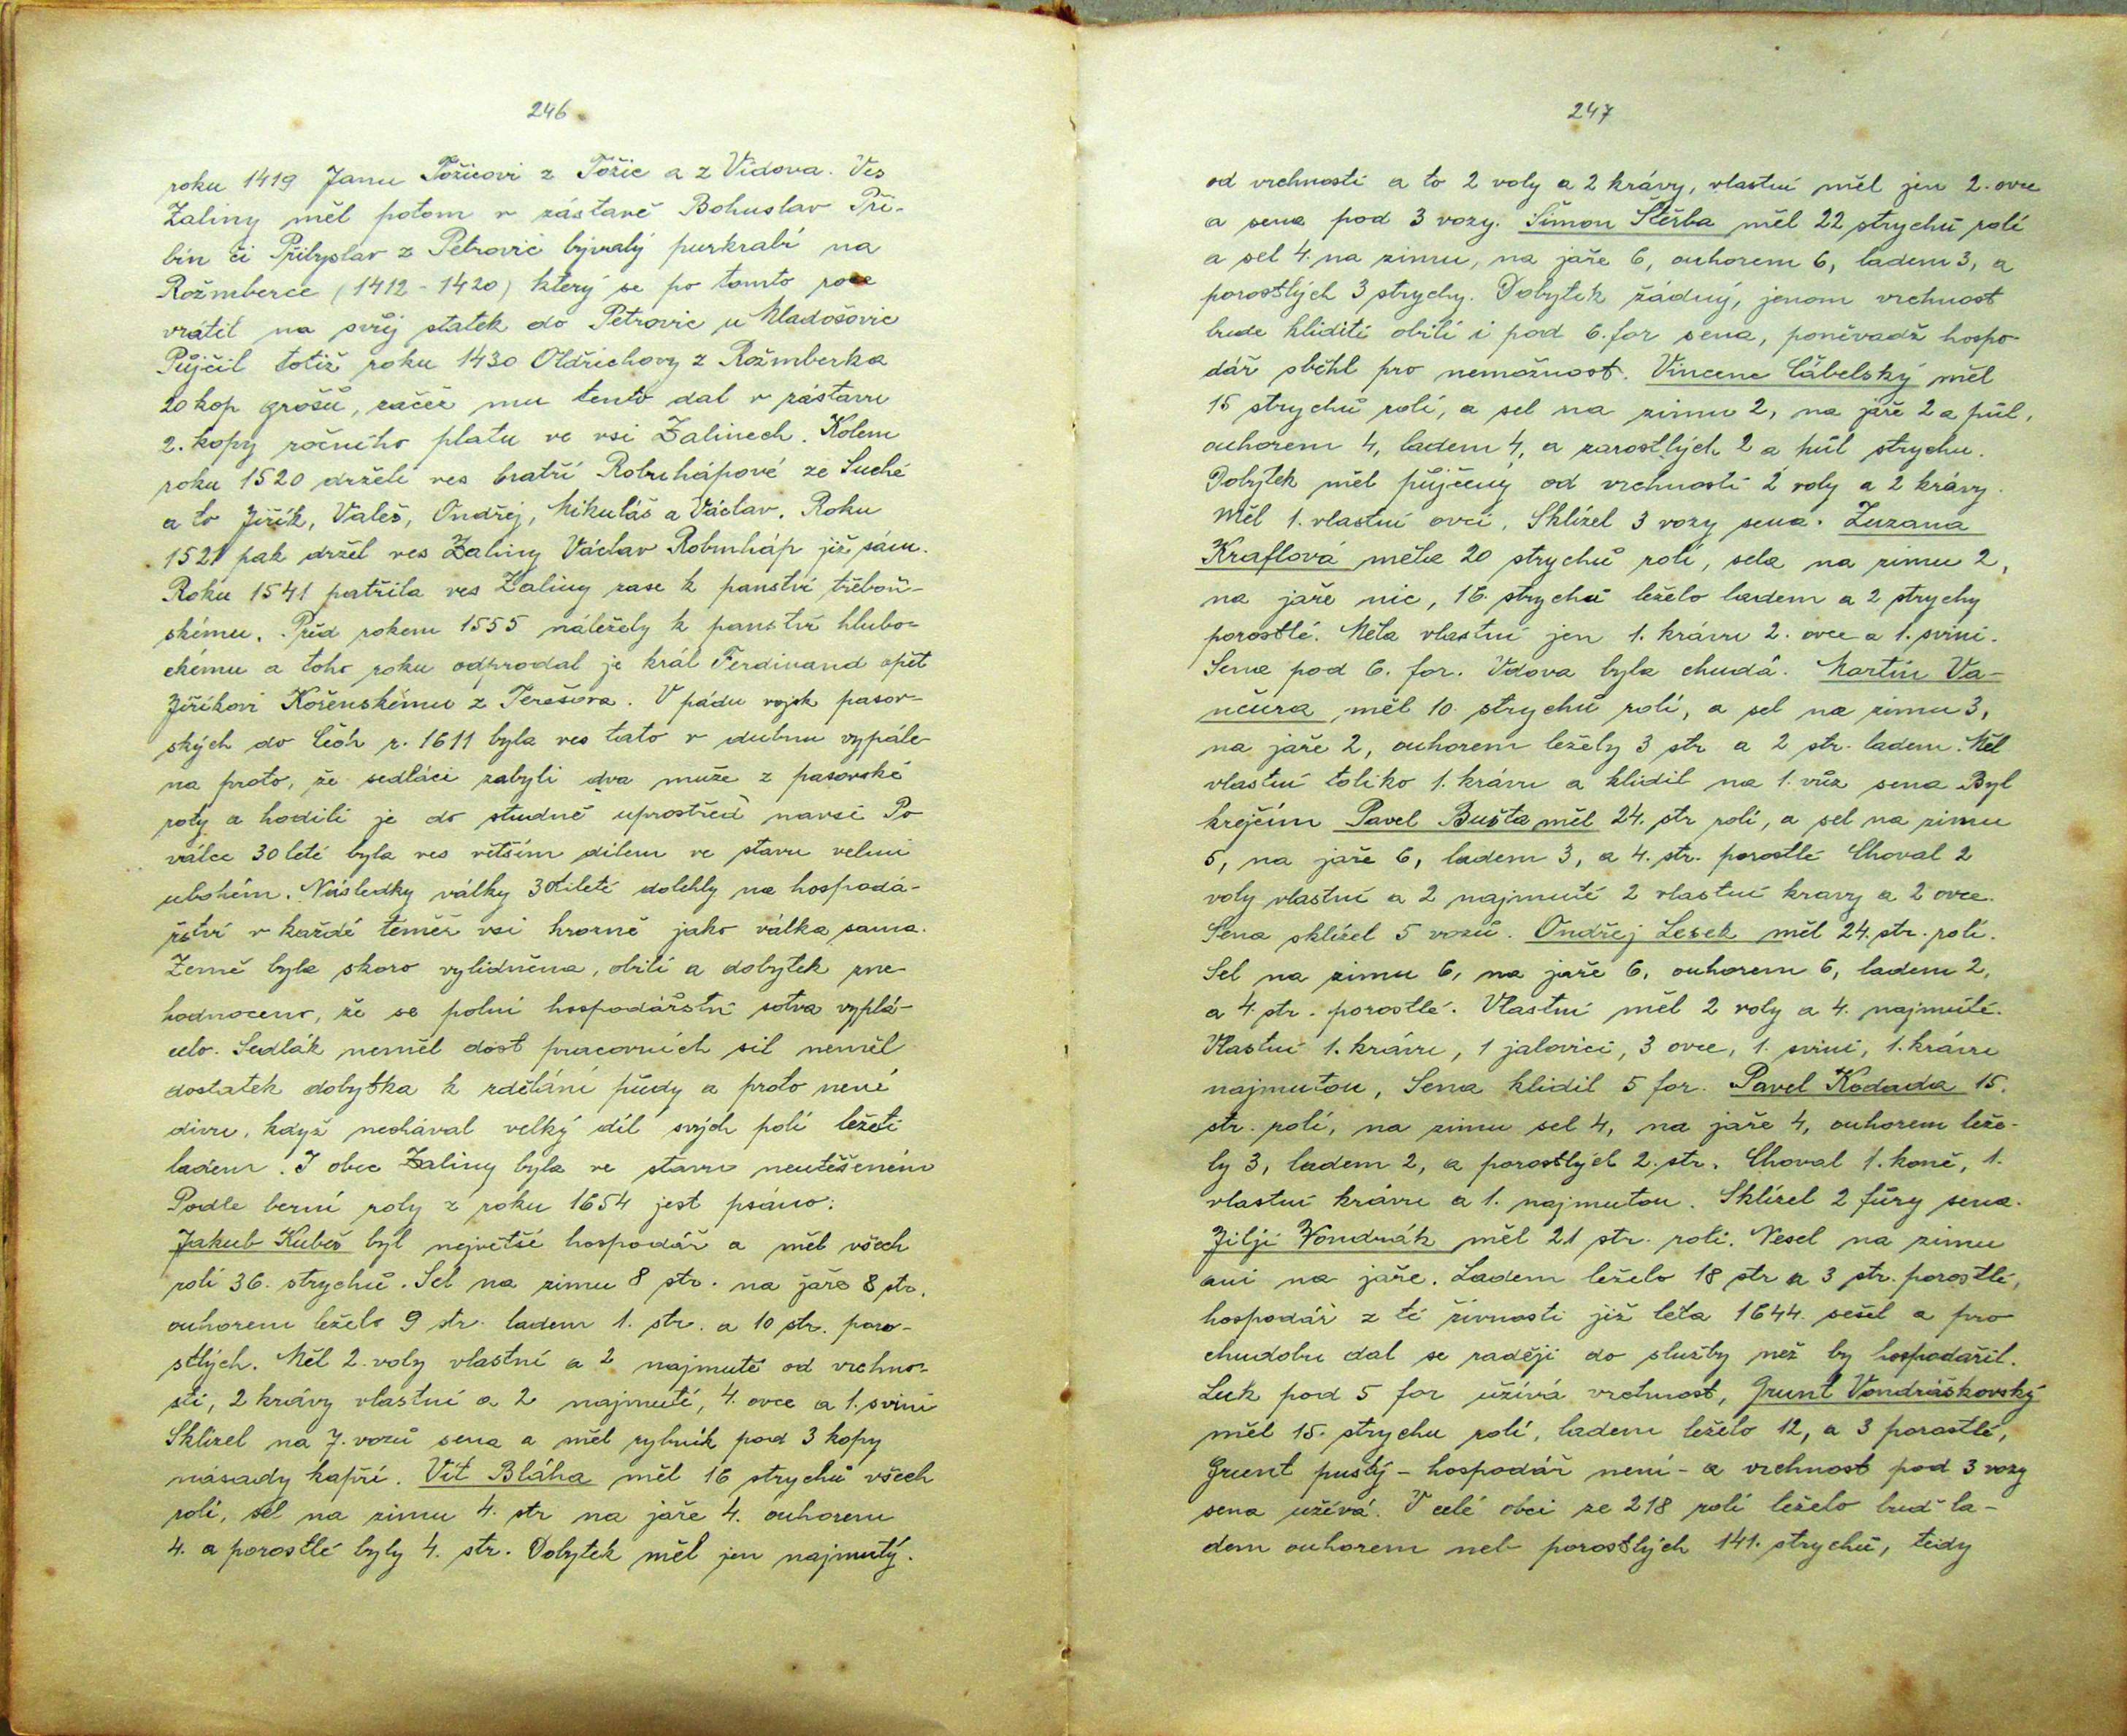 246
roku 1419 Janu Tožicovi z Tožic a z Vidova. Ves
Zaliny měl potom v zástavě Bohuslav Při-
bín či Přibyslav z Petrovic bývalý purkrabí na
Rožmberce (1412-1420) který se po tomto roce
vrátil na svůj statek do Petrovic u Mladošovic
Půjčil totiž roku 1430 Oldřichovy z Rožmberka
20 kop grošů, začež mu tento dal v zástavu
2. kopy ročního platu ve vsi Zalinech. Kolem
roku 1520 drželi ves bratří Robmhápové ze Suché
a to Jiřík, Valeš, Ondřej, Mikuláš a Václav. Roku
1521 pak držel ves Zaliny Václav Robmháp již sám.
Roku 1541 patřila ves Zaliny zase k panství třeboň-
skému. Před rokem 1555 náležely k panství hlubo-
ckému a toho roku odprodal je král Ferdinand opět
Jiříkovi Kořenskému z Terešova. V pádu vojsk pasov-
ských do Čech r. 1611 byla ves tato v dubnu vypále-
na proto, že sedláci zabyli dva muže z pasovské
roty a hodili je do studně uprostřed navsi Po
válce 30leté byla ves větším dílem ve stavu velmi
ubohém. Následky války 30tileté dolehly na hospodá-
řství v každé teměř vsi hrozně jako válka sama.
Země byla skoro vylidněna, obilí a dobytek zne-
hodnoceno, že se polní hospodářství sotva vyplá-
celo. Sedlák neměl dost pracovních sil neměl
dostatek dobytka k zdělání půdy a proto není
divu, když nechával velký díl svých polí ležeti
ladem. I obec Zaliny byla ve stavu neutěšeném
Podle berní roly z roku 1654 jest psáno:
Jakub Kubeš byl největší hospodář a měl všech
rolí 36. strychů. Sel na zimu 8 str. na jaře 8 str.
ouhorem leželo 9 str. ladem 1. str. a 10 str. poro-
stlých. Měl 2. voly vlastní a 2 najmuté od vrchno-
sti, 2 krávy vlastní a 2 najmuté, 4. ovce a 1. svini
Sklízel na 7. vozů sena a měl rybník pod 3 kopy
násady kapří. Vít Bláha měl 16 strychů všech
rolí, sel na zimu 4. str na jaře 4. ouhorem
4. a porostlé byly 4. str. Dobytek měl jen najmutý.
247
od vrchnosti a to 2 voly a 2 krávy, vlastní měl jen 2. ovce
a sena pod 3 vozy. Šimon Štěrba měl 22 strychů rolí
a sel 4. na zimu, na jaře 6, ouhorem 6, ladem 3, a
porostlých 3 strychy. Dobytek žádný, jenom vrchnost
bude kliditi obilí i pod 6. for sena, poněvadž hospo-
dář sběhl pro nemožnost. Vincenc Cábelský měl
15 strychů rolí, a sel na zimu 2, na jaře 2 a púl,
ouhorem 4, ladem 4, a zarostlých 2 a púl strychu.
Dobytek měl půjčený od vrchnosti 2 voly a 2 krávy.
Měl 1. vlastní ovci. Sklízel 3 vozy sena. Zuzana
Kraflová měla 20 strychů rolí, sela na zimu 2,
na jaře nic, 16. strychů leželo ladem a 2 strychy
porostlé. Měla vlastní jen 1. krávu 2. ovce a 1. svini.
Sena pod 6. for. Vdova byla chudá. Martin Va-
nčura měl 10 strychů rolí, a sel na zimu 3,
na jaře 2, ouhorem ležely 3 str a 2 str. ladem. Měl
vlastní toliko 1. krávu a klidil na 1. vůz sena Byl
krejčím Pavel Bušta měl 24. str rolí, a sel na zimu
5, na jaře 6, ladem 3, a 4. str. porostlé Choval 2
voly vlastní a 2 najmuté 2 vlastní kravy a 2 ovce.
Sena sklízel 5 vozů. Ondřej Lesek měl 24. str. rolí.
Sel na zimu 6, na jaře 6, ouhorem 6, ladem 2,
a 4. str. porostlé. Vlastní měl 2 voly a 4. najmuté.
Vlastní 1. krávu, 1 jalovici, 3 ovce, 1. svini, 1. krávu
najmutou, Sena klidil 5 for. Pavel Kodada 15.
str. rolí, na zimu sel 4, na jaře 4, ouhorem leže-
ly 3, ladem 2, a porostlých 2. str. Choval 1. koně, 1.
vlastní krávu a 1. najmutou. Sklízel 2 fůry sena.
Jilji Vondrák měl 21 str. roli. Nesel na zimu
ani na jaře. Ladem leželo 18 str a 3 str. porostlé,
hospodář z té živnosti již léta 1644. sešel a pro
chudobu dal se raději do služby než by hospodařil.
Luk pod 5 for užívá vrchnost, Grunt Vondráškovský
měl 15. strychu rolí, ladem leželo 12, a 3 porostlé,
Grunt pustý - hospodář není - a vrchnost pod 3 vozy
sena užívá. V celé obci ze 218 rolí leželo buď la-
dem ouhorem neb porostlých 141. strychů, tedy